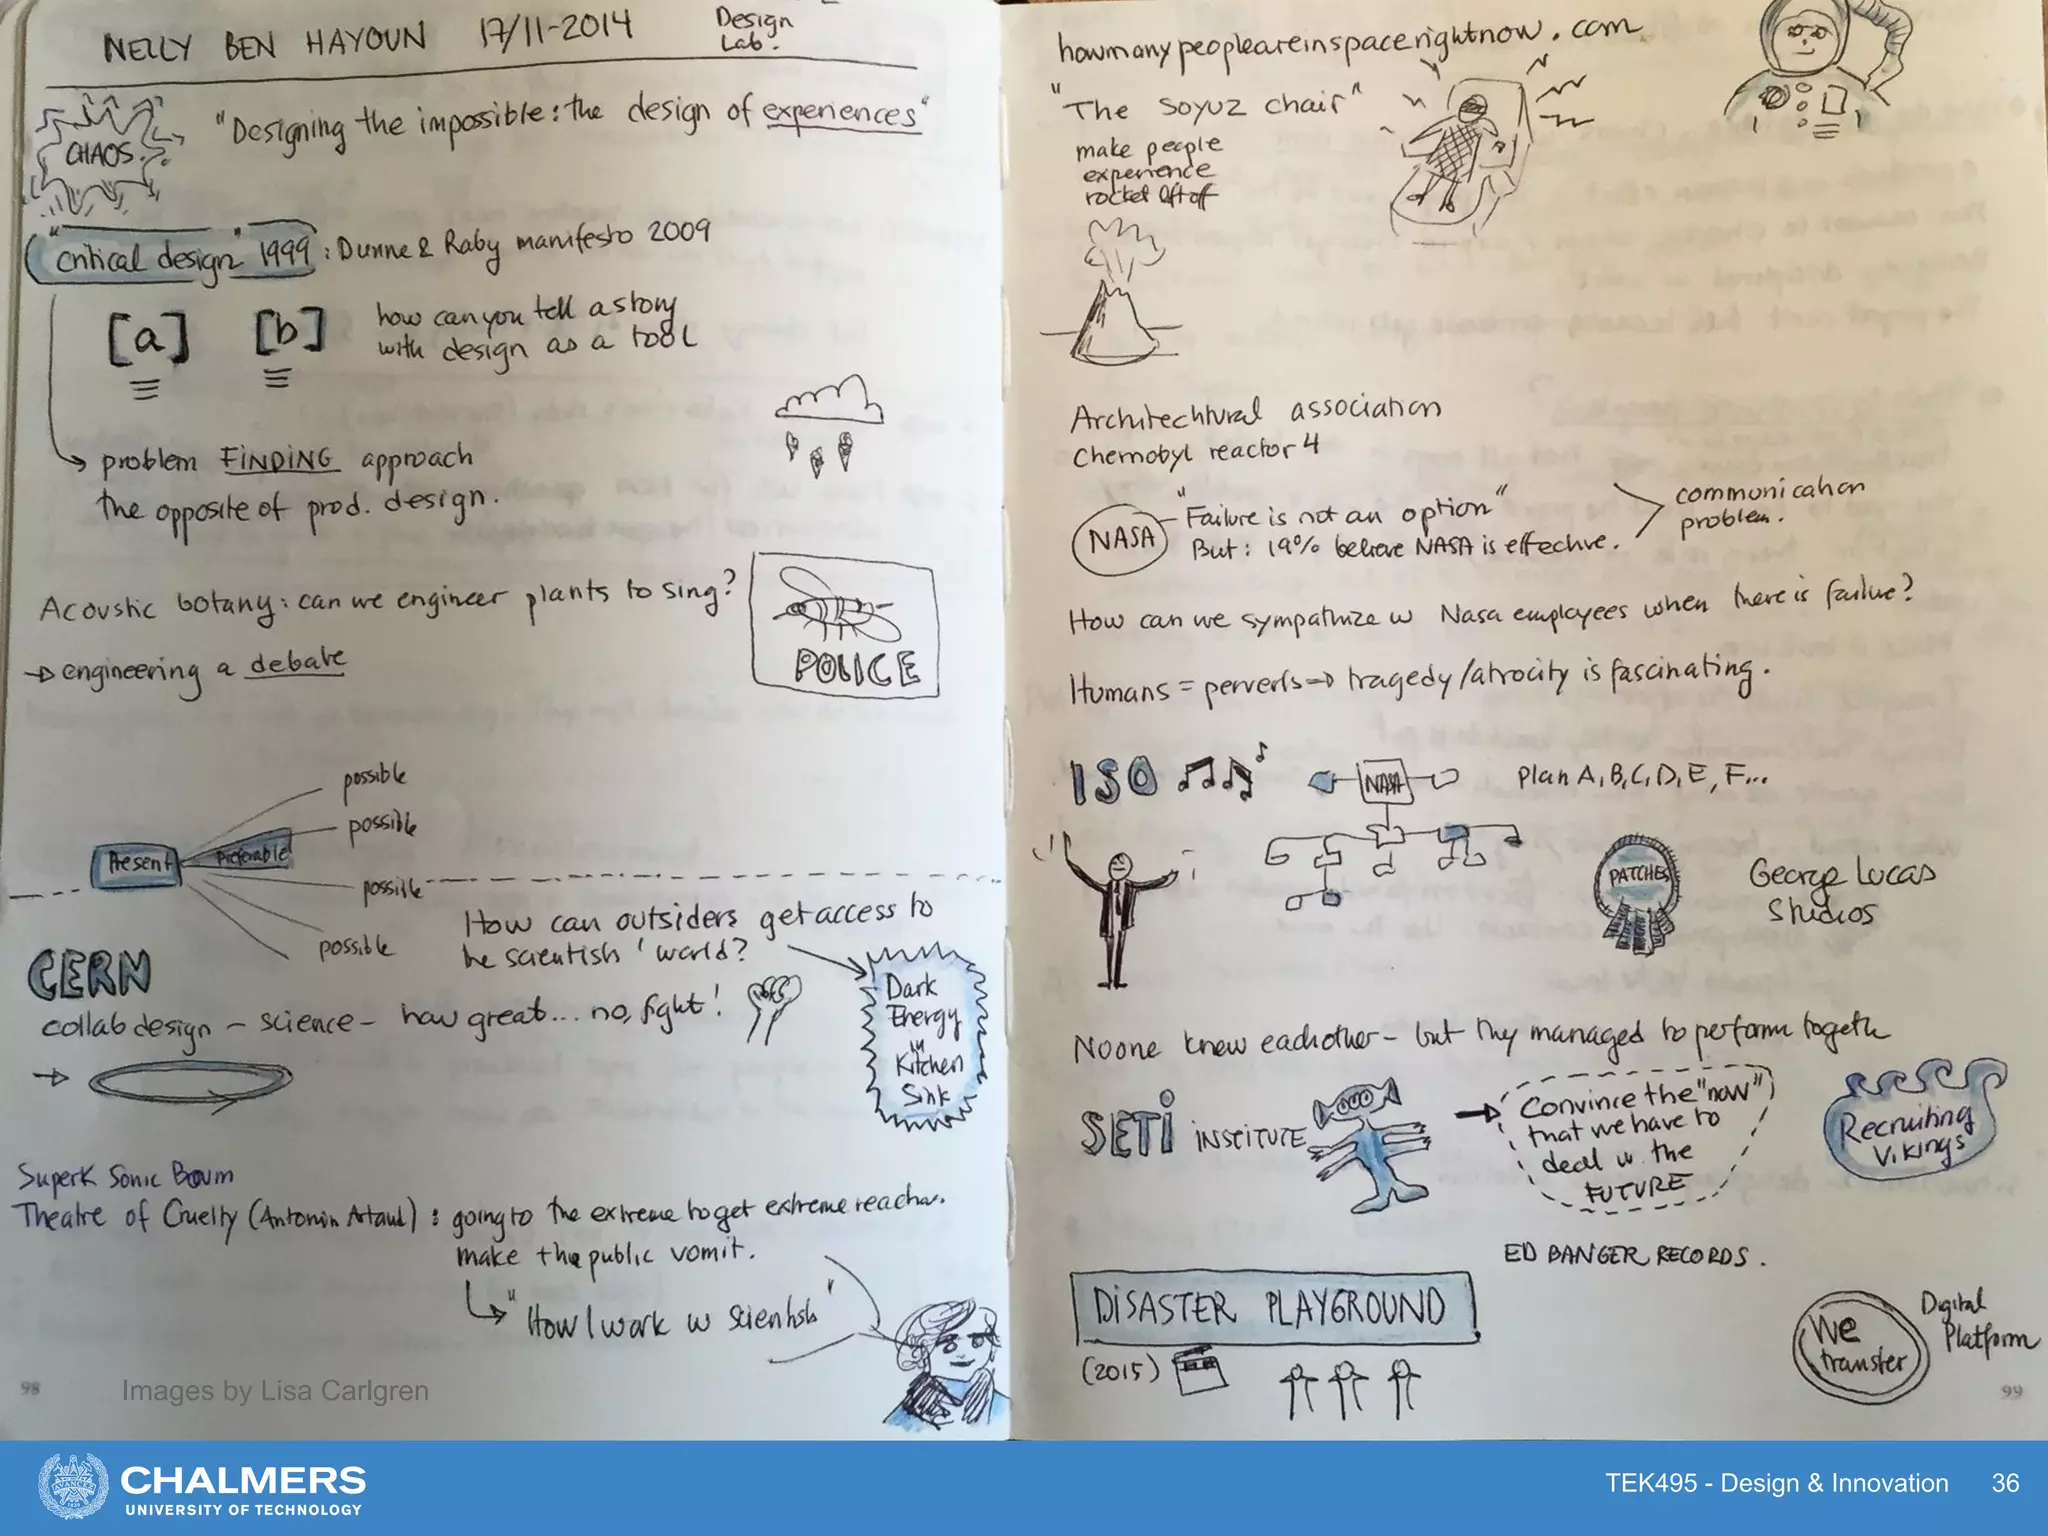 NELLY BEN HAYOUN 17/11-2014 Design Lab.
CHAOS.
"Designing the impossible: the design of experiences"
"critical design" 1999: Dunne & Raby manifesto 2009
[a] [b]
how can you tell a story
with design as a tool
problem FINDING approach
the opposite of prod. design.
Acoustic botany: can we engineer plants to sing?
→ engineering a debate
POLICE
possible
possible
Present preferable
possible
possible
How can outsiders get access to
he scientists' world?
CERN
collab design - science - how great... no, fight!
Dark
Energy
in
Kitchen
Sink
Superk Sonic Boum
Theatre of Cruelty (Antonin Artaud): going to the extreme to get extreme
make the public vomit.
"How I work w scientists"
98
Images by Lisa Carlgren
howmanypeopleareinspacerightnow.com
"The Soyuz chair"
make people
experience
rocket liftoff
Architechtural association
Chernobyl reactor 4
NASA
"Failure is not an option"
But: 19% believe NASA is effective.
communication
problem.
How can we sympathize w Nasa employees when there is failure?
Humans = perverts → tragedy/atrocity is fascinating.
ISO
NASA
Plan A, B, C, D, E, F...
PATCHES
George Lucas
Studios
No one knew eachother - but they managed to perform togeth
SETI INSTITUTE
Convince the "now"
that we have to
deal w. the
FUTURE
Recruiting
Vikings
ED BANGER RECORDS.
DISASTER PLAYGROUND
(2015)
We
transfer
Digital
Platform
99
CHALMERS
UNIVERSITY OF TECHNOLOGY
AVANCEZ
TEK495 - Design & Innovation 36